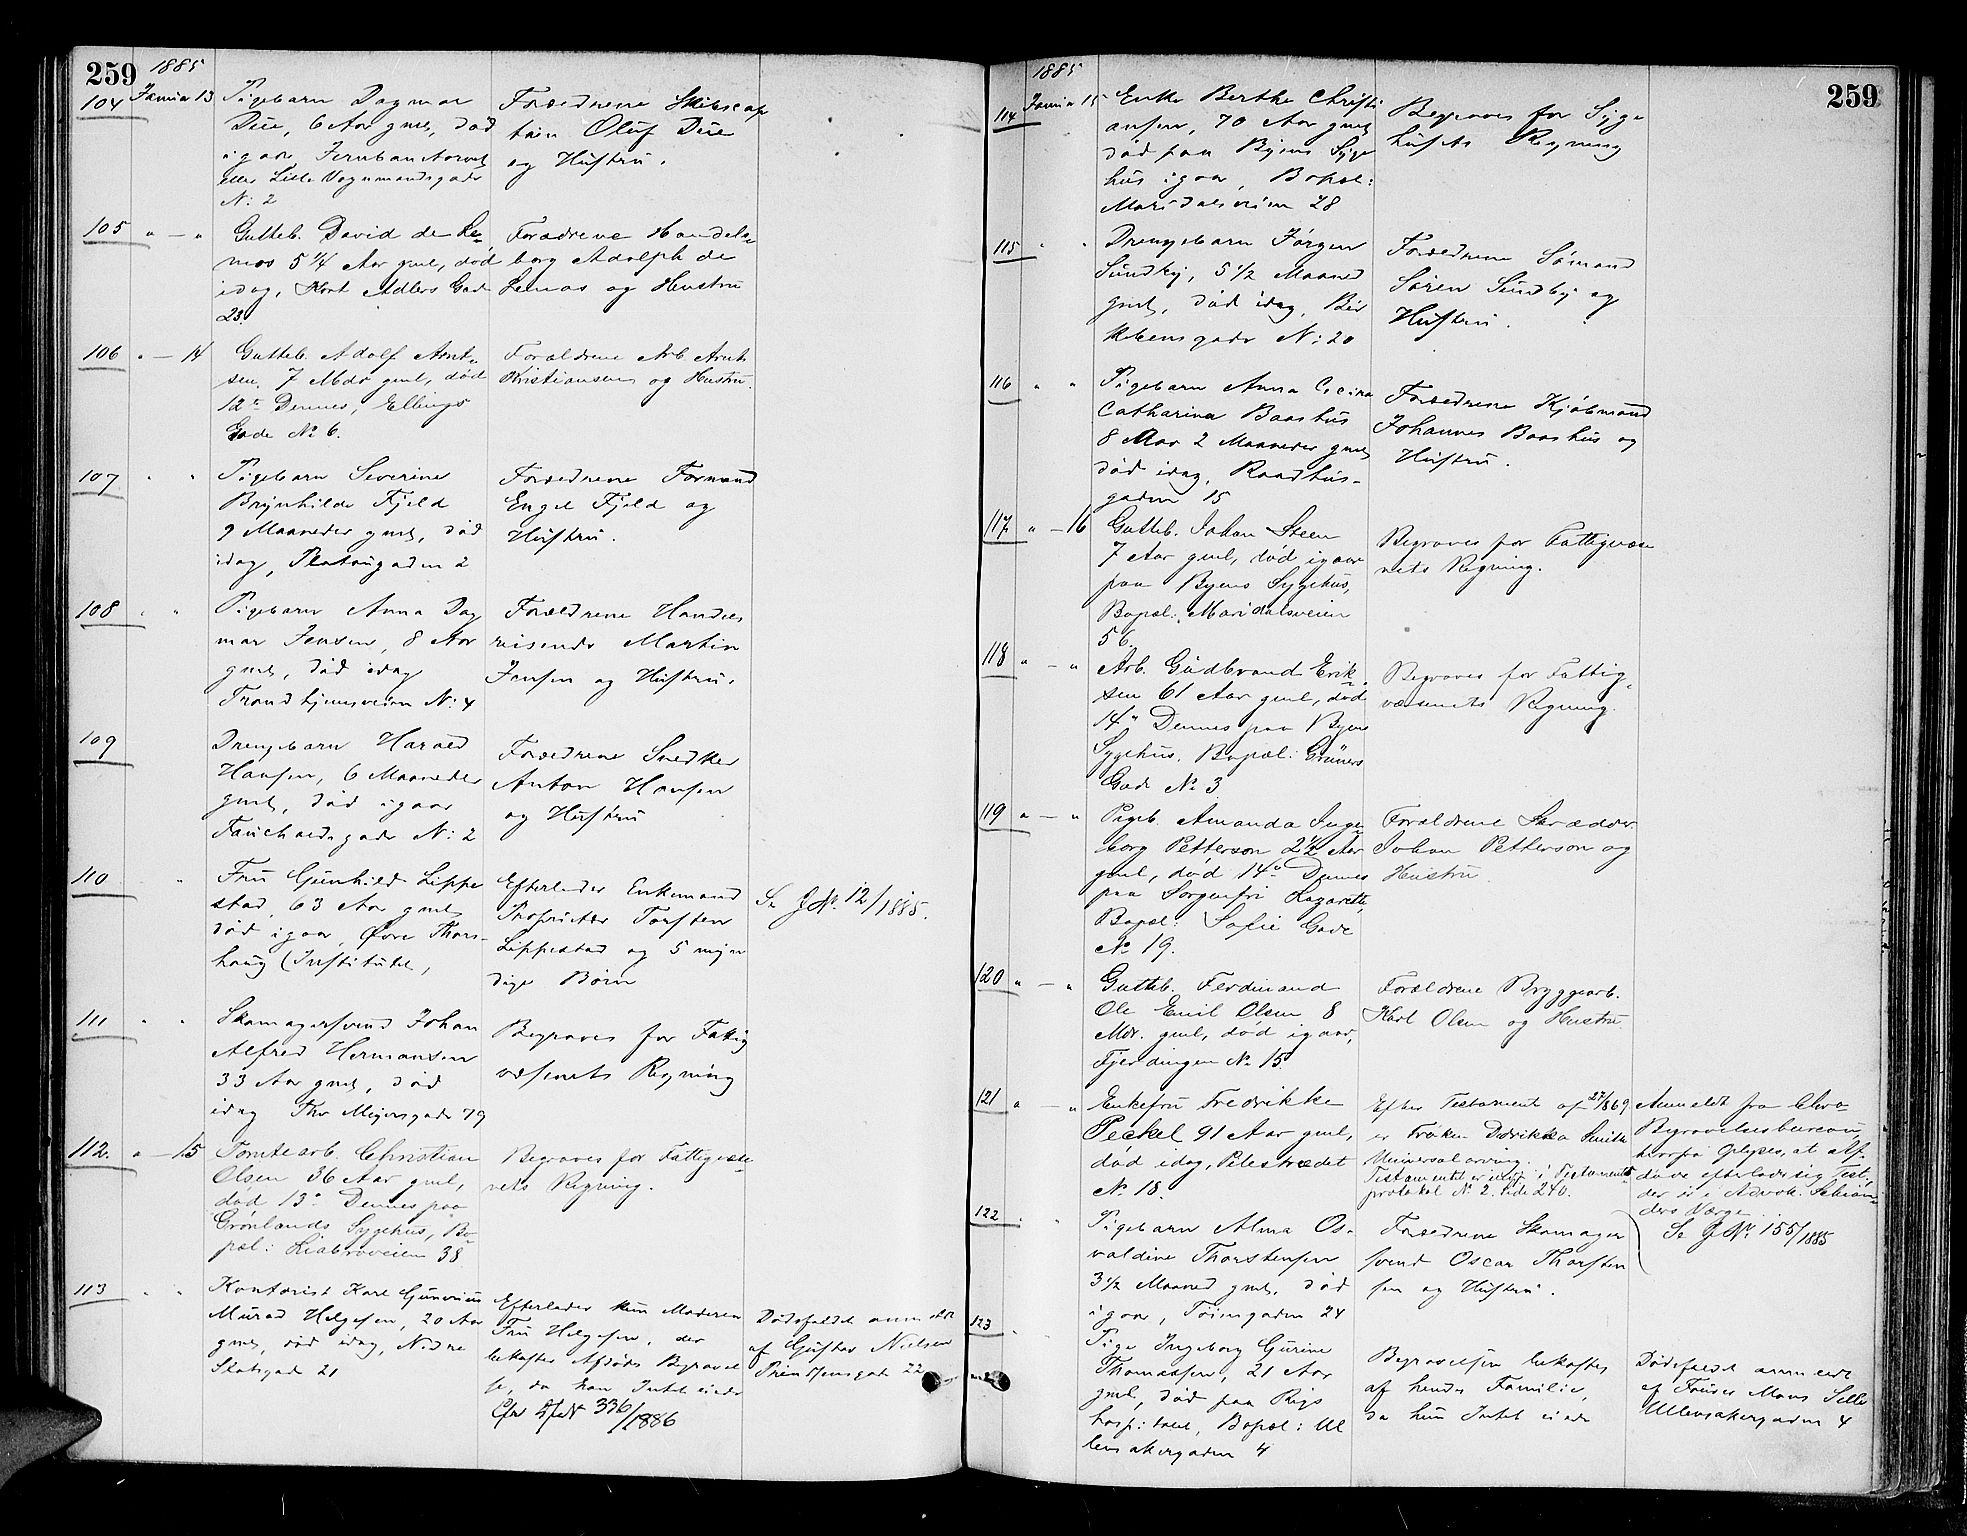 259
1885
104 Januar 13 Pigebarn Dagmar
Due, 6 Aar gml, død
igaar, Jernbanetorvet
eller Lille Vognmandsgade
N: 2
Forældrene Skibscap
tain Oluf Due
og Hustru.
105 " — " Gutteb. David de Le-
mos 5 1/4 Aar gml, død
idag, Kort Adlers Gade
23.
Forældrene Handels-
borg Adolph de
Lemos og Hustru
106 " — 14 Gutteb. Adolf Arnt-
sen, 7 Mdr gml, død
12te Dennes, Ellings
Gade No 6.
Forældrene Arb. Arnt
Kristiansen og Hustru.
107 " " Pigebarn Severine
Brynhilde Fjeld
9 Maaneder gml, død
idag, Platougaden 2
Forældrene Formand
Engel Fjeld og
Hustru.
108 " " Pigebarn Anna Dag
mar Jensen, 8 Aar
gml, død idag
Trondhjemsveien N: 4
Forældrene Handels
reisende Martin
Jensen og Hustru.
109 Drengebarn Harald
Hansen, 6 Maaneder
gml, død igaar
Fauchaldsgade N: 2
Forældrene Snedker
Anton Hansen
og Hustru
110 " Fru Gunhild Lippe
stad, 63 Aar gml
død igaar, Øvre Thors-
haug (Institutet,
Efterlader Enkemand
Proprietær Torsten
Lippestad og 5 myn
dige Børn
Se J№ 12/1885.
111 " " Skomagersvend Johan
Alfred Hermansen
33 Aar gml, død
idag Thv Meyersgade 79
Begraves for Fattig
væsenets Regning
112. " — 15 Tomtearb. Christian
Olsen 36 Aar gml,
død 13de Dennes paa
Grønlands Sygehus, Bo-
pæl: Liabroveien 38
Begraves for Fattigvæse-
nets Regning.
113 " " Kontorist Karl Gunerius
Murad Helgesen, 20 Aar
gml, død idag, Nedre
Slotsgade 21
Efterlader kun Moderen
Fru Helgesen, der
bekoster Afdødes Begravel
se, da han Intet eiede
Cfr J№ 336/1886
Dødsfaldet anmeldt
af Gustav Nielsen
Prindsensgade 22
259
1885
114 Januar 15 Enke Berthe Christi
ansen, 70 Aar gml
død paa Byens Syge
hus igaar, Bopæl:
Maridalsveien 28
Begraves for Syge
husets Regning
115 " " Drengebarn Jørgen
Sundby, 5 1/2 Maaned
gml, død idag, Bir
kebensgade N: 20
Forældrene Sømand
Søren Sundby og
Hustru.
116 " " Pigebarn Anna
Catharina Baashus
8 Aar 2 Maaneder gml
død idag, Raadhus-
gaden 15
Forældrene Kjøbmand
Johannes Baashus og
Hustru.
117 " — 16 Gutteb. Johan Steen
7 Aar gml, død igaar
paa Byens Sygehus,
Bopæl: Maridalsveien
56.
Begraves for Fattigvæse
nets Regning.
118 " — " Arb. Gudbrand Erik-
sen 61 Aar gml, død
14de Dennes paa Byens
Sygehus. Bopæl: Grüners
Gade No 3
Begraves for Fattig-
væsenets Regning.
119 " — " Pigeb. Amanda Inge-
borg Petterson 2 1/2 Aar
gml, død 14de Dennes
paa Sorgenfri Lazareth,
Bopæl: Sofie Gade
No 19.
Forældrene Skrædder
Johan Petterson og
Hustru.
120 " — " Gutteb. Ferdinand
Ole Emil Olsen 8
Mdr. gml, død igaar,
Fjerdingen No 15.
Forældrene Bryggearb.
Karl Olsen og Hustru
121 " — " Enkefru Fredrikke
Peckel 91 Aar gml,
død idag, Pilestrædet
No 18.
Efter Testamente af 27/ 1869
er Frøken Didrikka Smith
Universalarving.
Testamentet er indf. i Testaments-
protokol No 2. side 240.
Anmeldt fra Chra
Begravelsesbureau,
hvorfra oplyses, at Af-
døde efterlader sig Test,
der er i Advok. Schjan-
ders Værge
Se J№ 155/1885
122 " " Pigebarn Alma Os-
valdine Thorstensen
3 1/2 Maaned gml, død
igaar, Tøiengaden 24
Forældrene Skomager
svend Oscar Thorsten
sen og Hustru.
123 Pige Ingeborg Gurine
Thomassen, 21 Aar
gml, død paa Rigs
hospitalet, Bopæl: Ul
lensakergaden 4
Begravelsen bekostes
af hendes Familie,
da hun Intet eiede
Dødsfaldet anmeldt
af Mons
Ullensakergaden 4